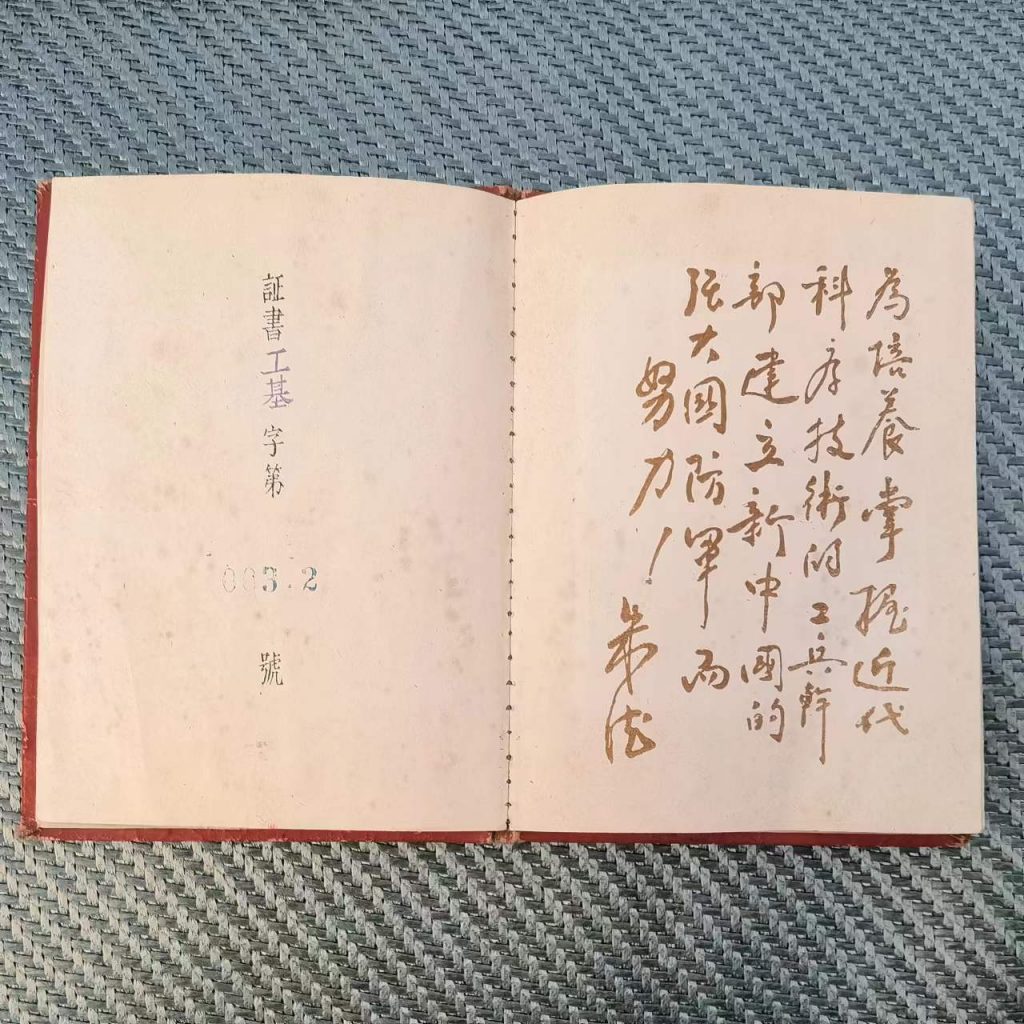 為培養掌握近代
科学技術的工兵幹
部建立新中國的
强大國防軍而
努力！
朱德
証書工基字第003.2號